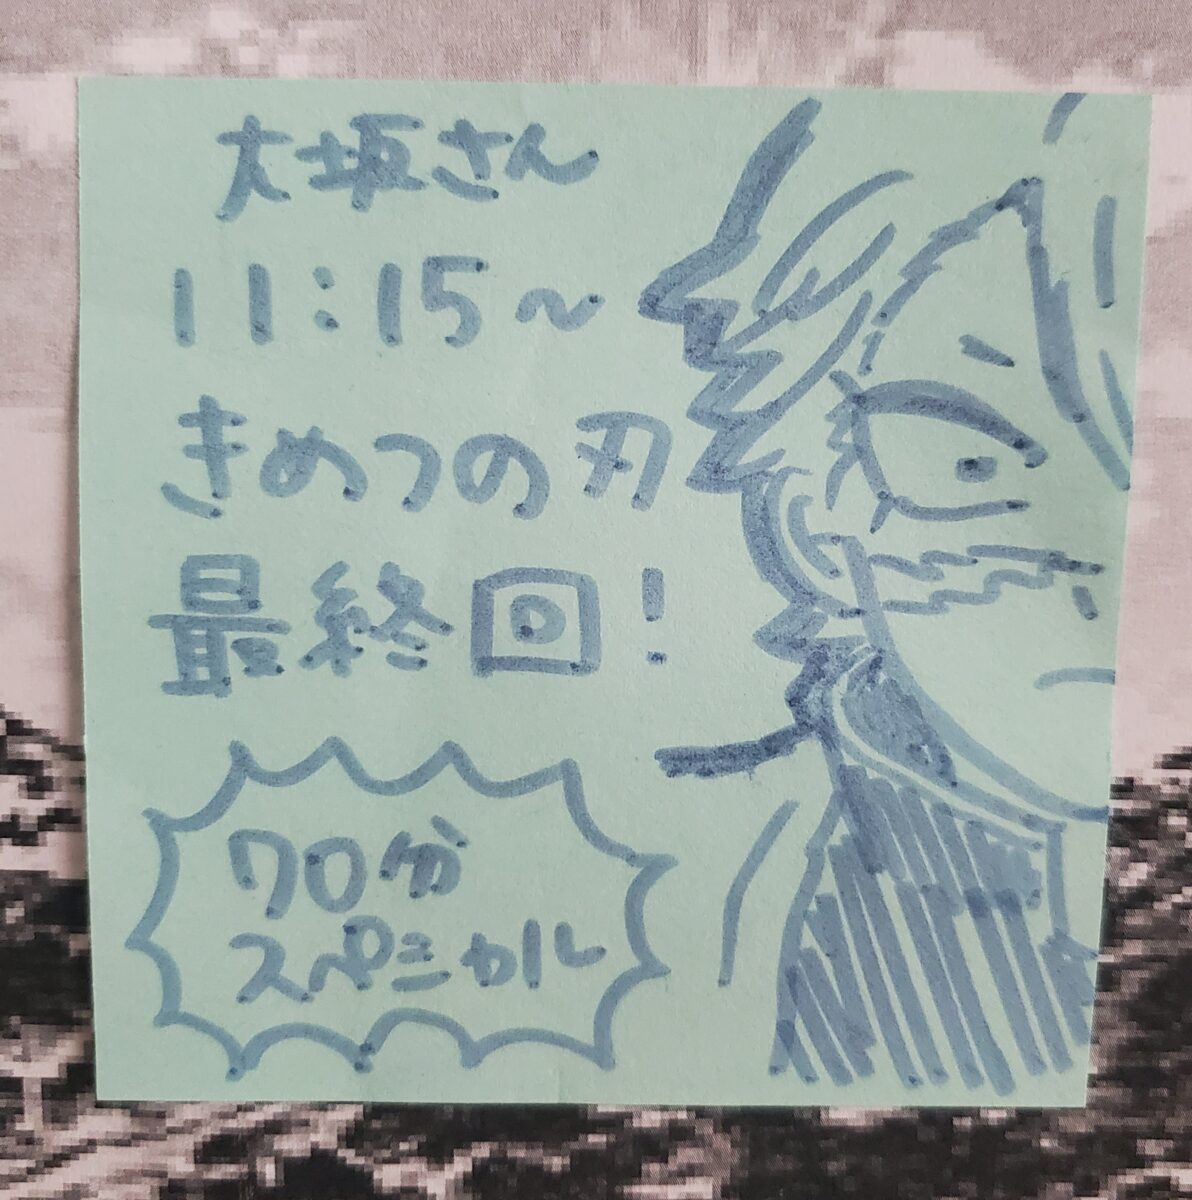 大坂さん
11:15~
きめつの刃
最終回!
70分
スペシャル